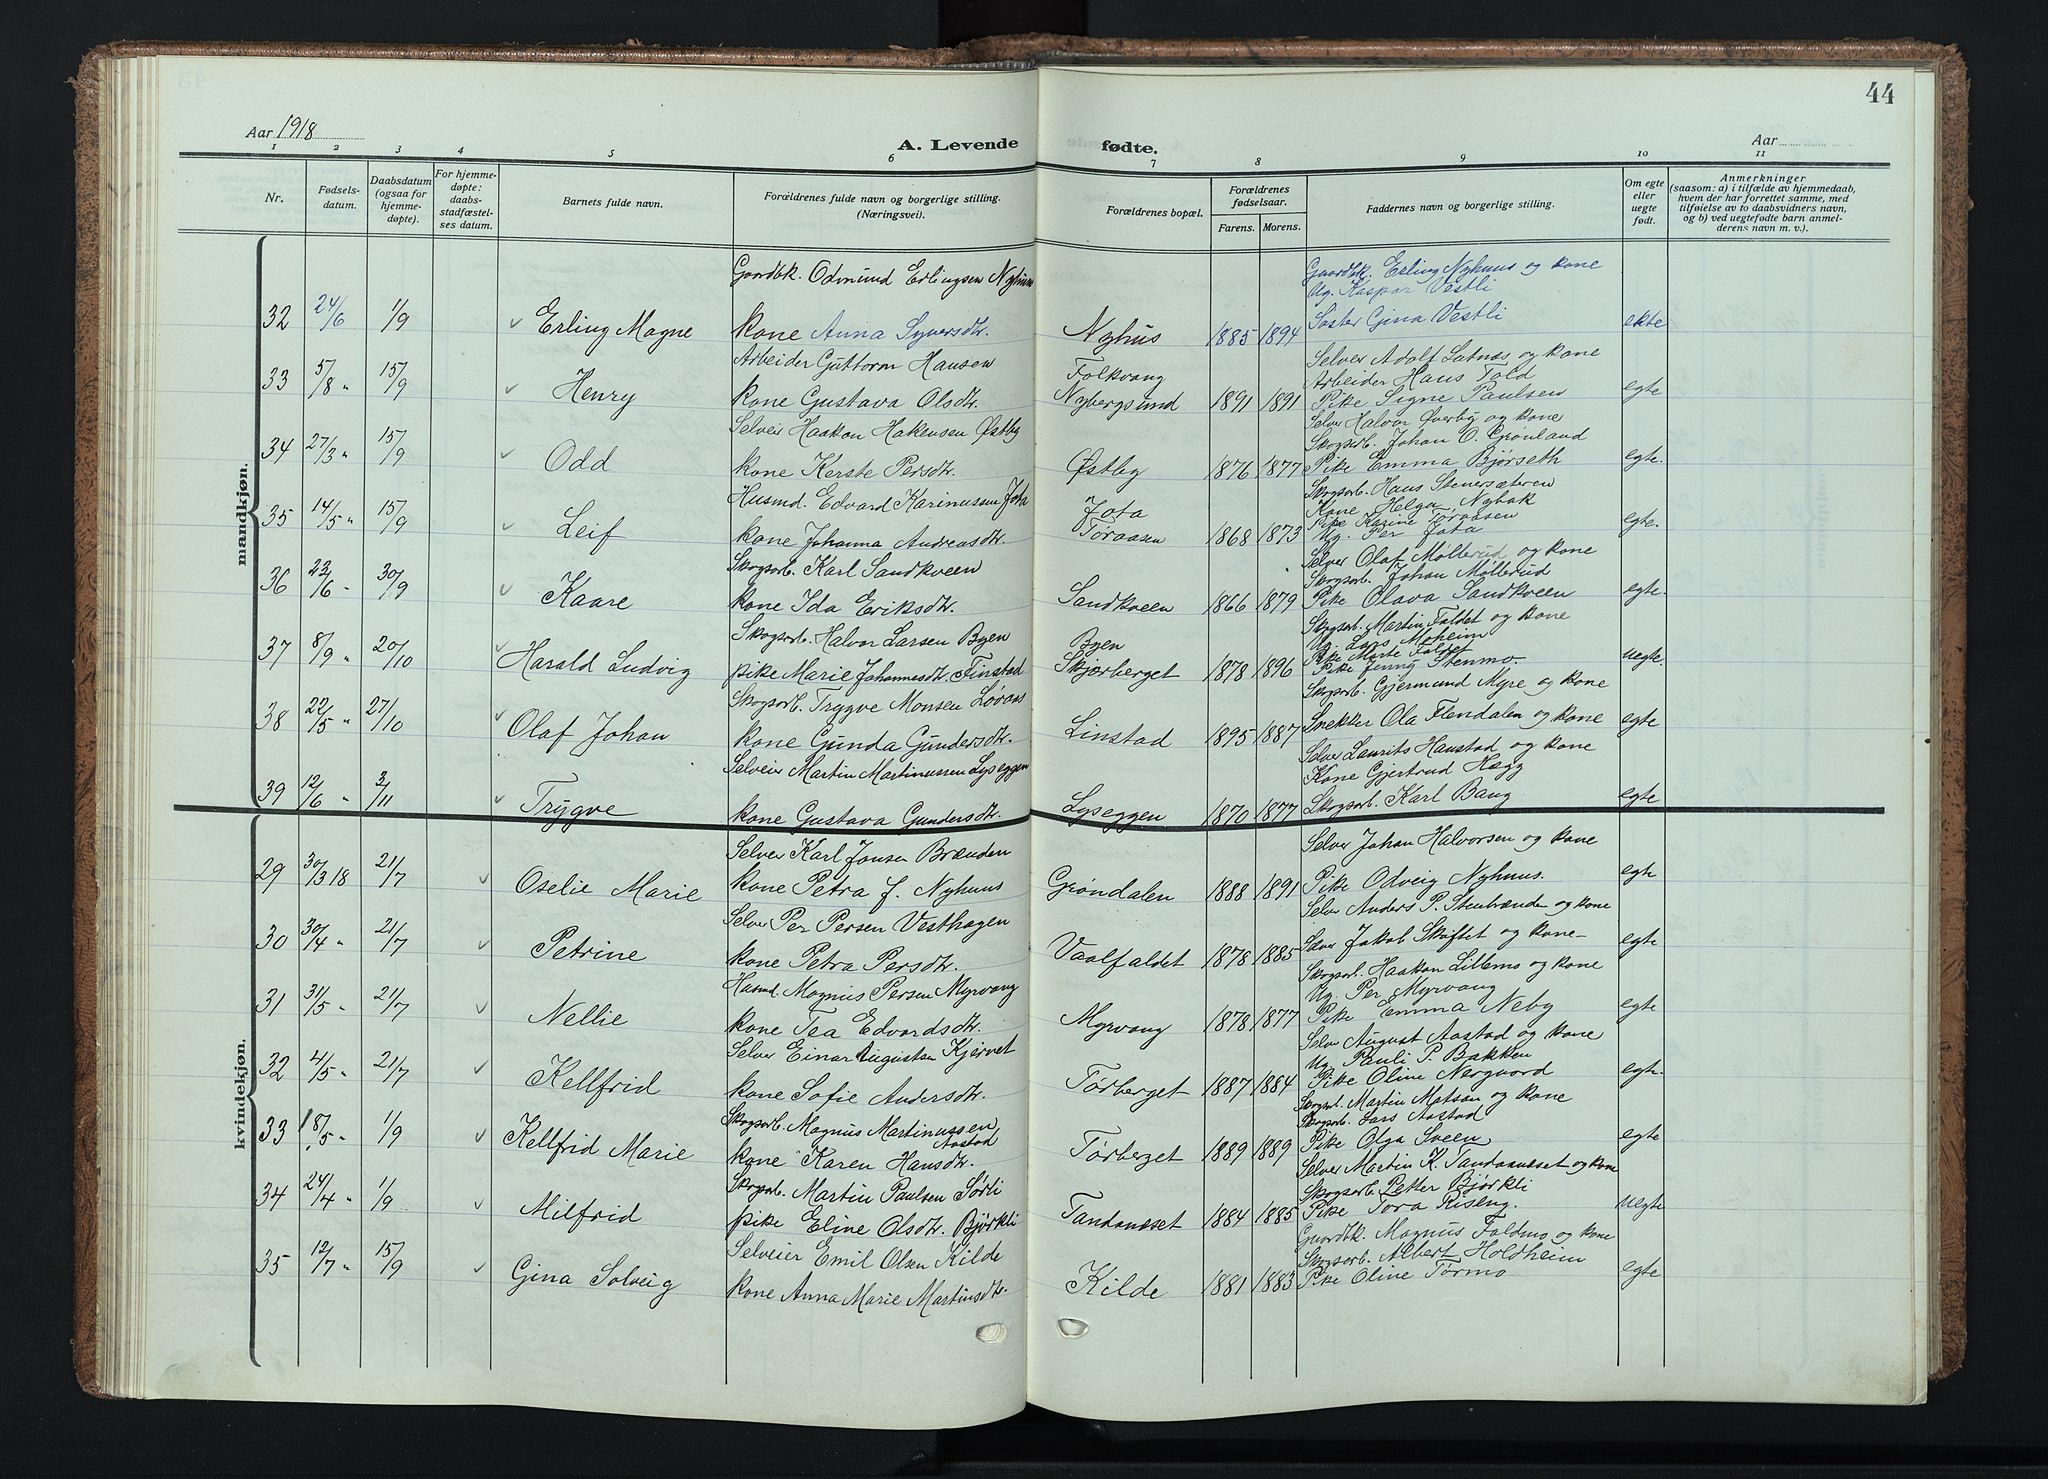 44
Aar 1918
A. Levende fødte.
Aar
1 2 3 4 5 6 7 8 9 10 11
Nr.
Fødsels-datum.
Daabsdatum (ogsaa for hjemme-døpte).
For hjemme-døpte: daabs-stadfæstel-ses datum.
Barnets fulde navn.
Forældrenes fulde navn og borgerlige stilling. (Næringsvei).
Forældrenes bopæl.
Forældrenes fødselsaar.
Farens. Morens.
Faddernes navn og borgerlige stilling.
Om egte eller uegte født.
Anmerkninger
(saasom: a) i tilfælde av hjemmedaab,
hvem der har forrettet samme, med
tilføielse av to daabsvidners navn,
og b) ved uegtefødte barn anmel-
derens navn m. v.).
mandkjøn.
Gaardbk. Odmund Erlingsen Nyhuus
Gaardbk. Erling Nyhuus og kone
Ug. Kaspar Vestli
32 24/6 1/9 Erling Magne kone Anna Syversdtr. Nyhus 1885 1894 Søster Gina Vestli ekte
Arbeider Guttorm Hansen Folkvang Selveier Adolf Lutnæs og kone
Arbeider Hans Told
33 5/8 " 15/9 Henry kone Gustava Olsdtr. Nybergsund 1891 1891 Pike Signe Paulsen egte
Selveier Haakon Hakensen Østby Selver Halvor Øverby og kone
Skogsarb. Johan O. Grønland
34 27/3 " 15/9 Odd kone Kerste Persdtr. Østby 1876 1877 Pike Emma Bjørseth egte.
Husmd. Edvard Karinussen Jota Jota Skogsarb. Hans Stenersæteren
Kone Helga Nybak
Pike Karine Tøraasen
35 14/5 " 15/9 Leif kone Johanna Andreasdtr. Tøraasen 1868 1873 Ug. Per Jota egte.
Skogsarb. Karl Sandkveen Selver Olaf Møllerud og kone
Skogsarb. Johan Møllerud
36 23/6 - 30/9 Kaare kone Ida Eriksdtr. Sandkveen 1866 1879 Pike Olava Sandkveen egte.
Skogsarb. Halvor Larsen Byen Byen Skogsarb. Martin Faldet og kone
Ug. Lars Moheim
Pike Marte Faldet
37 8/9 " 20/10 Harald Ludvig pike Marie Johannesdtr. Finstad Skjærberget 1878 1896 Pike Jenny Stenmo. uegte.
Skogsarb. Trygve Monsen Løvaas Skogsarb. Gjermund Myre og kone
38 22/5 " 27/10 Olaf Johan kone Gunda Gundersdtr. Linstad 1895 1887 Snekker Ola Flendalen og kone egte
Selveier Martin Martinussen Lyseggen Selver Laurits Haustad og kone
Kone Gjertrud Hægg
39 12/6 " 3/11 Trygve kone Gustava Gundersdtr. Lyseggen 1870 1877 Skogsarb. Karl Baug egte
kvindekjøn.
Selver Karl Jonsen Brænden Selver Johan Halvorsen og kone
29 30/3 18 21/7 Oselie Marie kone Petra f. Nyhuus Grøndalen 1888 1891 Pike Odveig Nyhuus. egte
Selver Per Persen Vesthagen Selv. Anders P. Stenbrænden og kone
30 30/4 " 21/7 Petrine kone Petra Persdtr. Vaalfaldet 1878 1885 Selver Jakob Skiftet og kone egte
Husmd. Magnus Persen Myrvang Skogsarb. Haakon Lillemo og kone
Ug. Per Myrvang
31 31/5 " 21/7 Nellie kone Tea Edvardsdtr. Myrvang 1878 1877 Pike Emma Neby egte
Selver Einar Augustsen Kjernet Selv. August Aastad og kone
Ug. Pauli P. Bakken
32 4/5 " 21/7 Kellfrid kone Sofie Andersdtr. Tørberget 1887 1884 Pike Oline Nergaard egte.
Skogsarb. Magnus Martinussen Aastad Skogsarb. Martin Matsen og kone
Skogsarb. Lars Aastad
33 18/5 " 1/9 Kellfrid Marie kone Karen Hansdtr. Tørberget 1889 1889 Pike Olga Sveen egte
Skogsarb. Martin Paulsen Sørli Selver Martin K. Tandanæset og kone
Skogsarb. Petter Bjørkli
34 24/4 " 1/9 Milfrid pike Eline Olsdtr. Bjørkli Tandanæset 1884 1885 Pike Tora Riseng. uegte
Selveier Emil Olsen Kilde Guardbk. Magnus Faldmo og kone
Skogsarb. Albert Holdheim
35 12/7 " 15/9 Gina Solveig kone Anna Marie Martinsdtr. Kilde 1881 1883 Pike Oline Tørmo egte